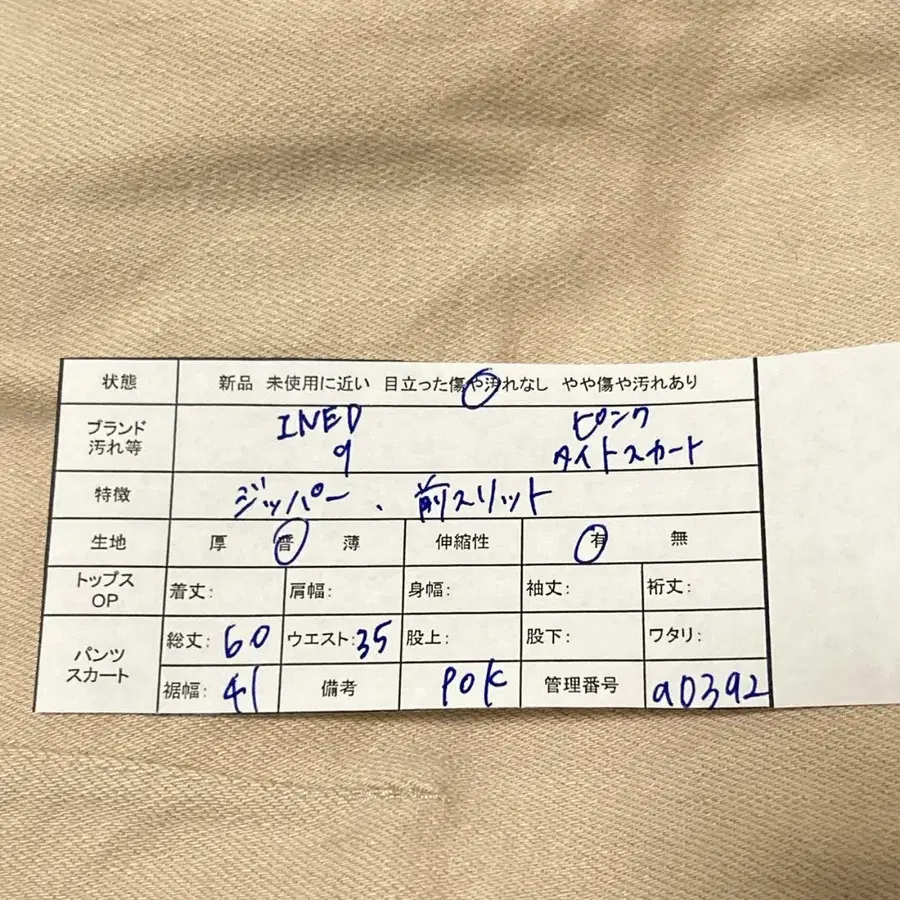 状態 新品 未使用に近い 目立った傷や汚れなし やや傷や汚れあり
ブランド 汚れ等 INED 9 ピンク タイトスカート
特徴 ジッパー、前スリット
生地 厚 普 薄 伸縮性 有 無
トップス OP 着丈: 肩幅: 身幅: 袖丈: 裄丈:
パンツ スカート 総丈: 60 ウエスト: 35 股上: 股下: ワタリ:
裾幅: 41 備考 POK 管理番号 a0392